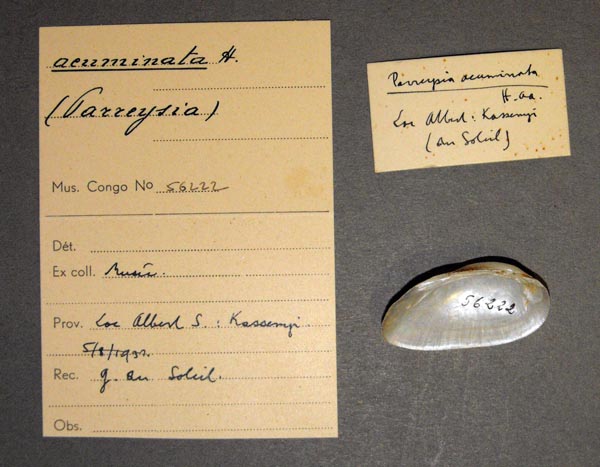 acuminata H.
(Parreysia)
Mus. Congo No 56222
Dét.
Ex coll. Musée.
Prov. Lac Albert S. : Kassenyi
Rec. g. du Soleil.
Obs.
Parreysia acuminata
H. aa.
Lac Albert : Kassenyi
(du Soleil)
56222